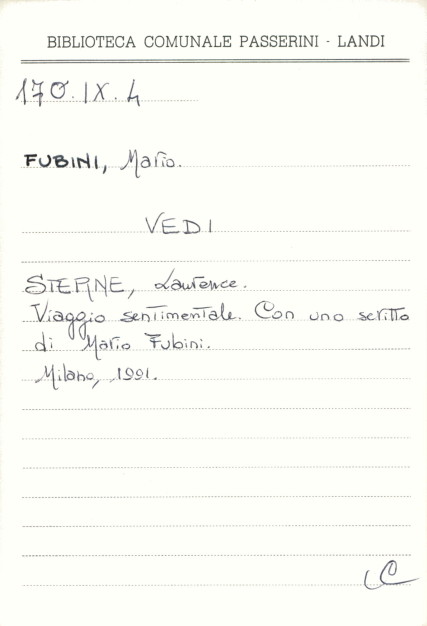 BIBLIOTECA COMUNALE PASSERINI - LANDI
170.IX.4
FUBINI, Mario.
VEDI
STERNE, Laurence.
Viaggio sentimentale. Con uno scritto
di Mario Fubini.
Milano, 1991.